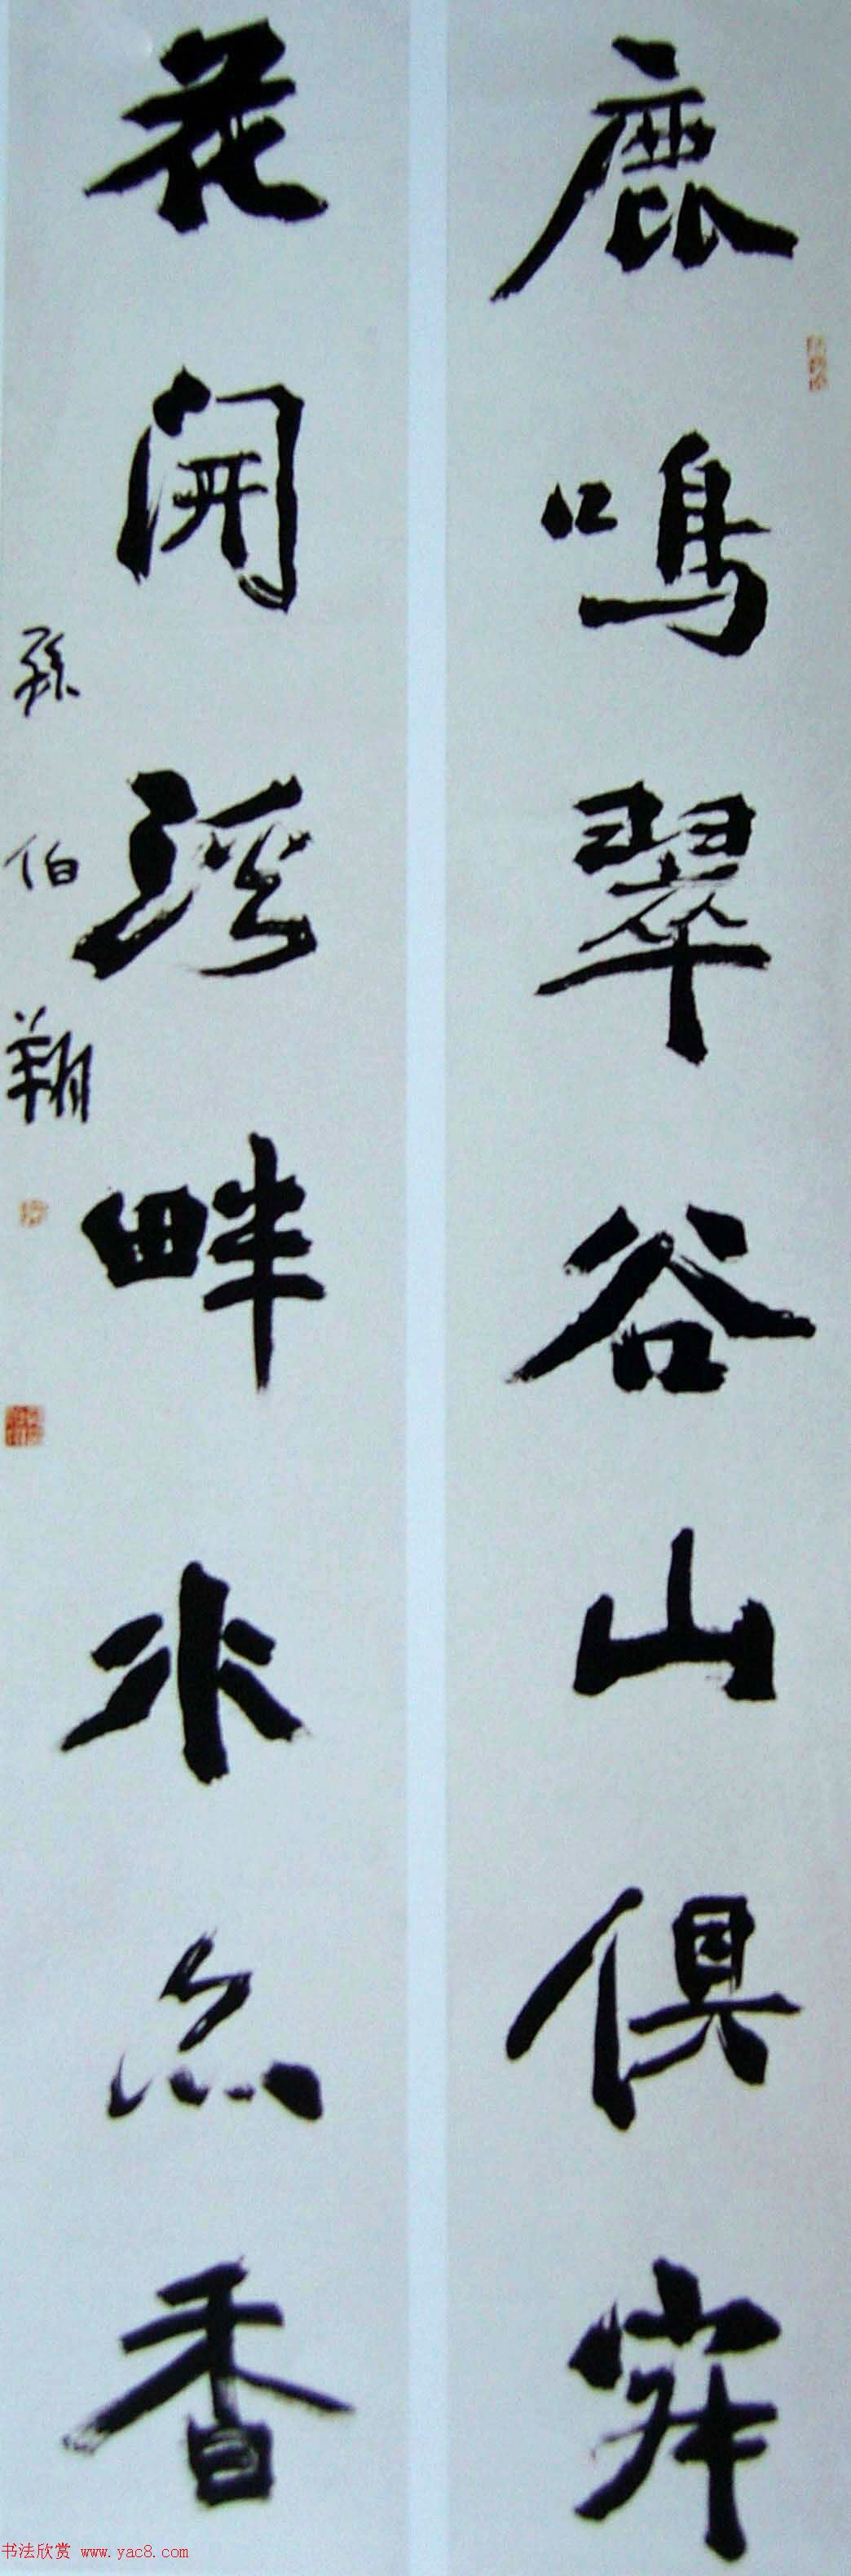 鹿鳴翠谷山俱寂
花開溪畔水亦香
孫伯翔
书法欣赏 www.yac8.com